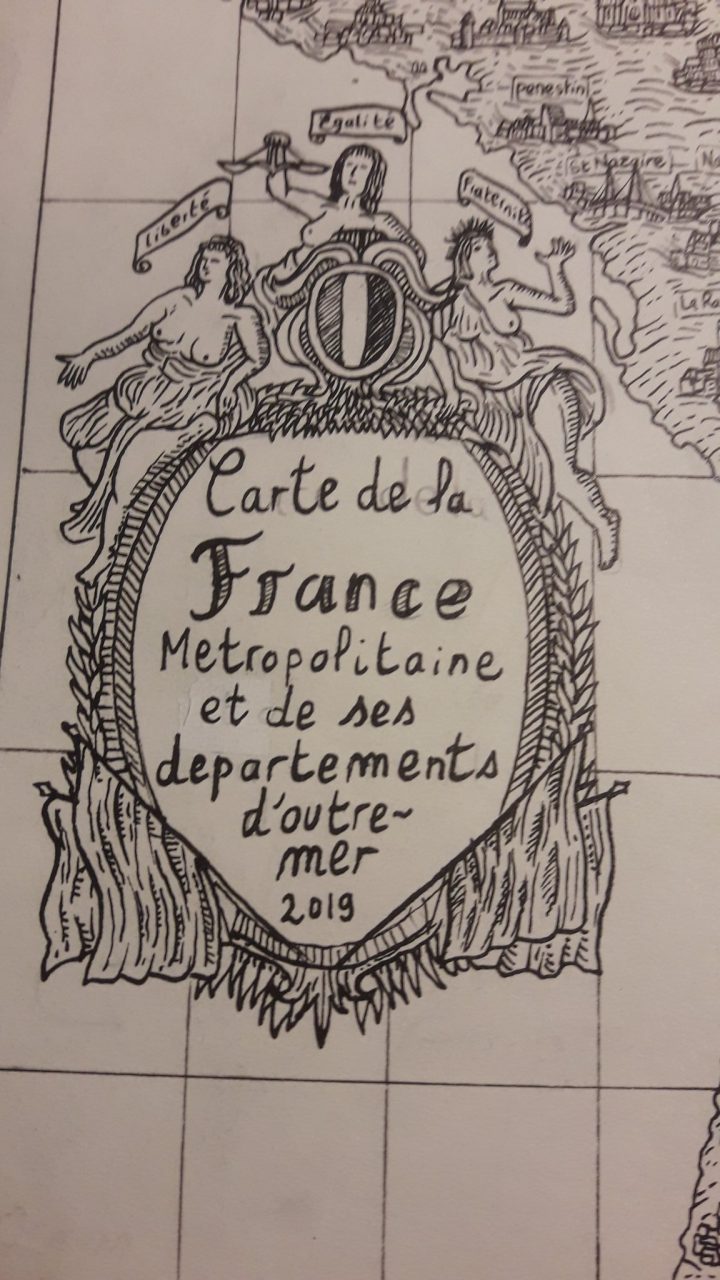 penestin
Egalité
St Nazaire
Liberté
Fraternité
Carte de la
France
Metropolitaine
et de ses
departements
d'outre~
mer
2019